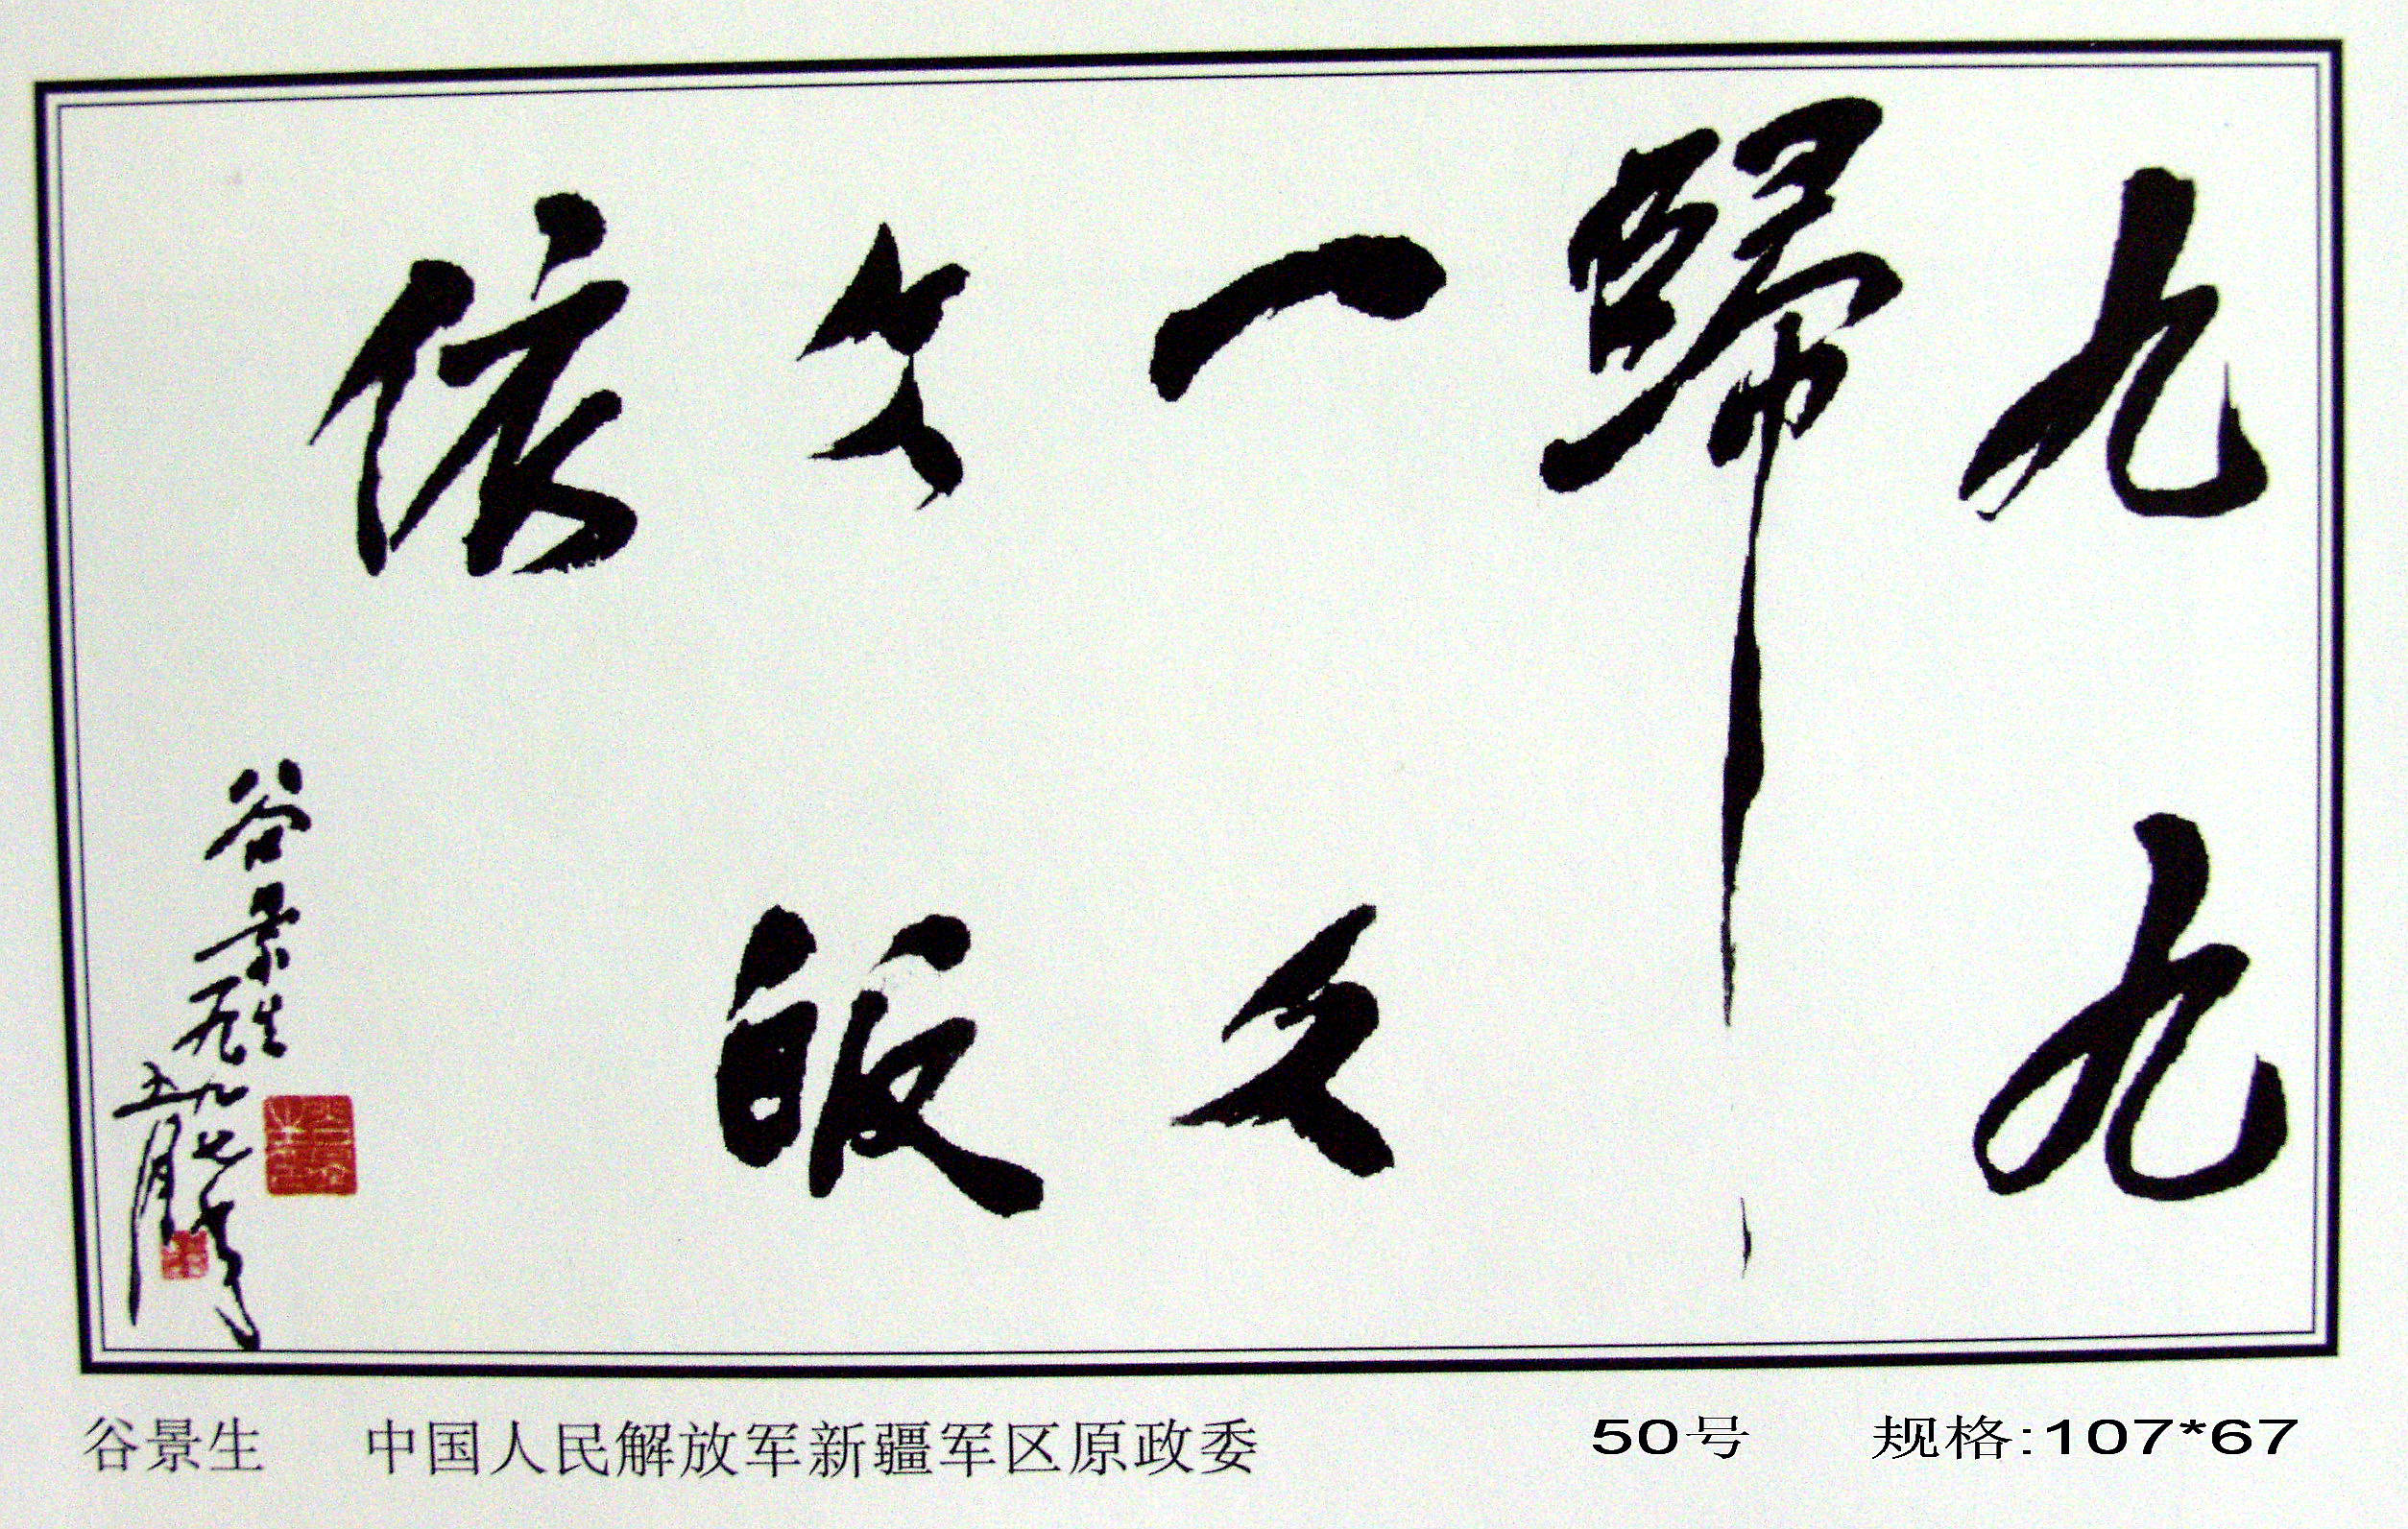 九九
歸
一久
久皈
依
谷景生
一九九七年
五月
谷景生 中国人民解放军新疆军区原政委 50号 规格:107*67